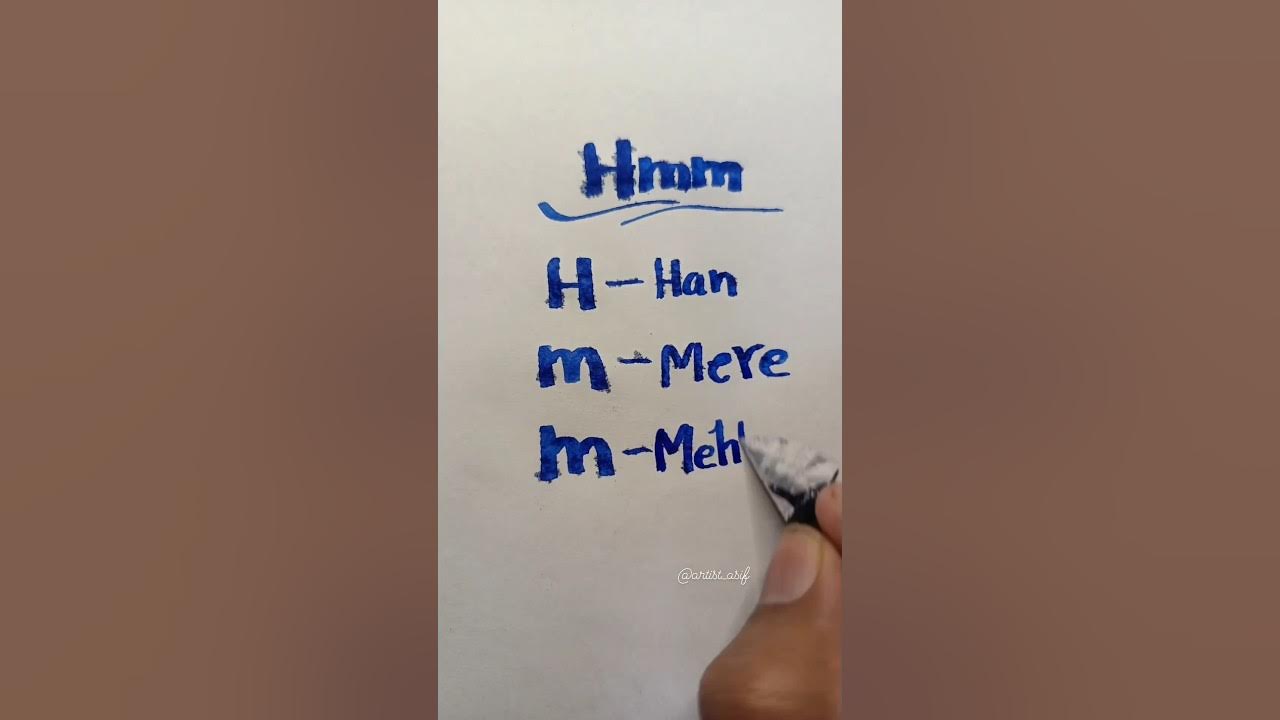 Hmm
H - Han
m - Mere
m - Meh
@artist_asif